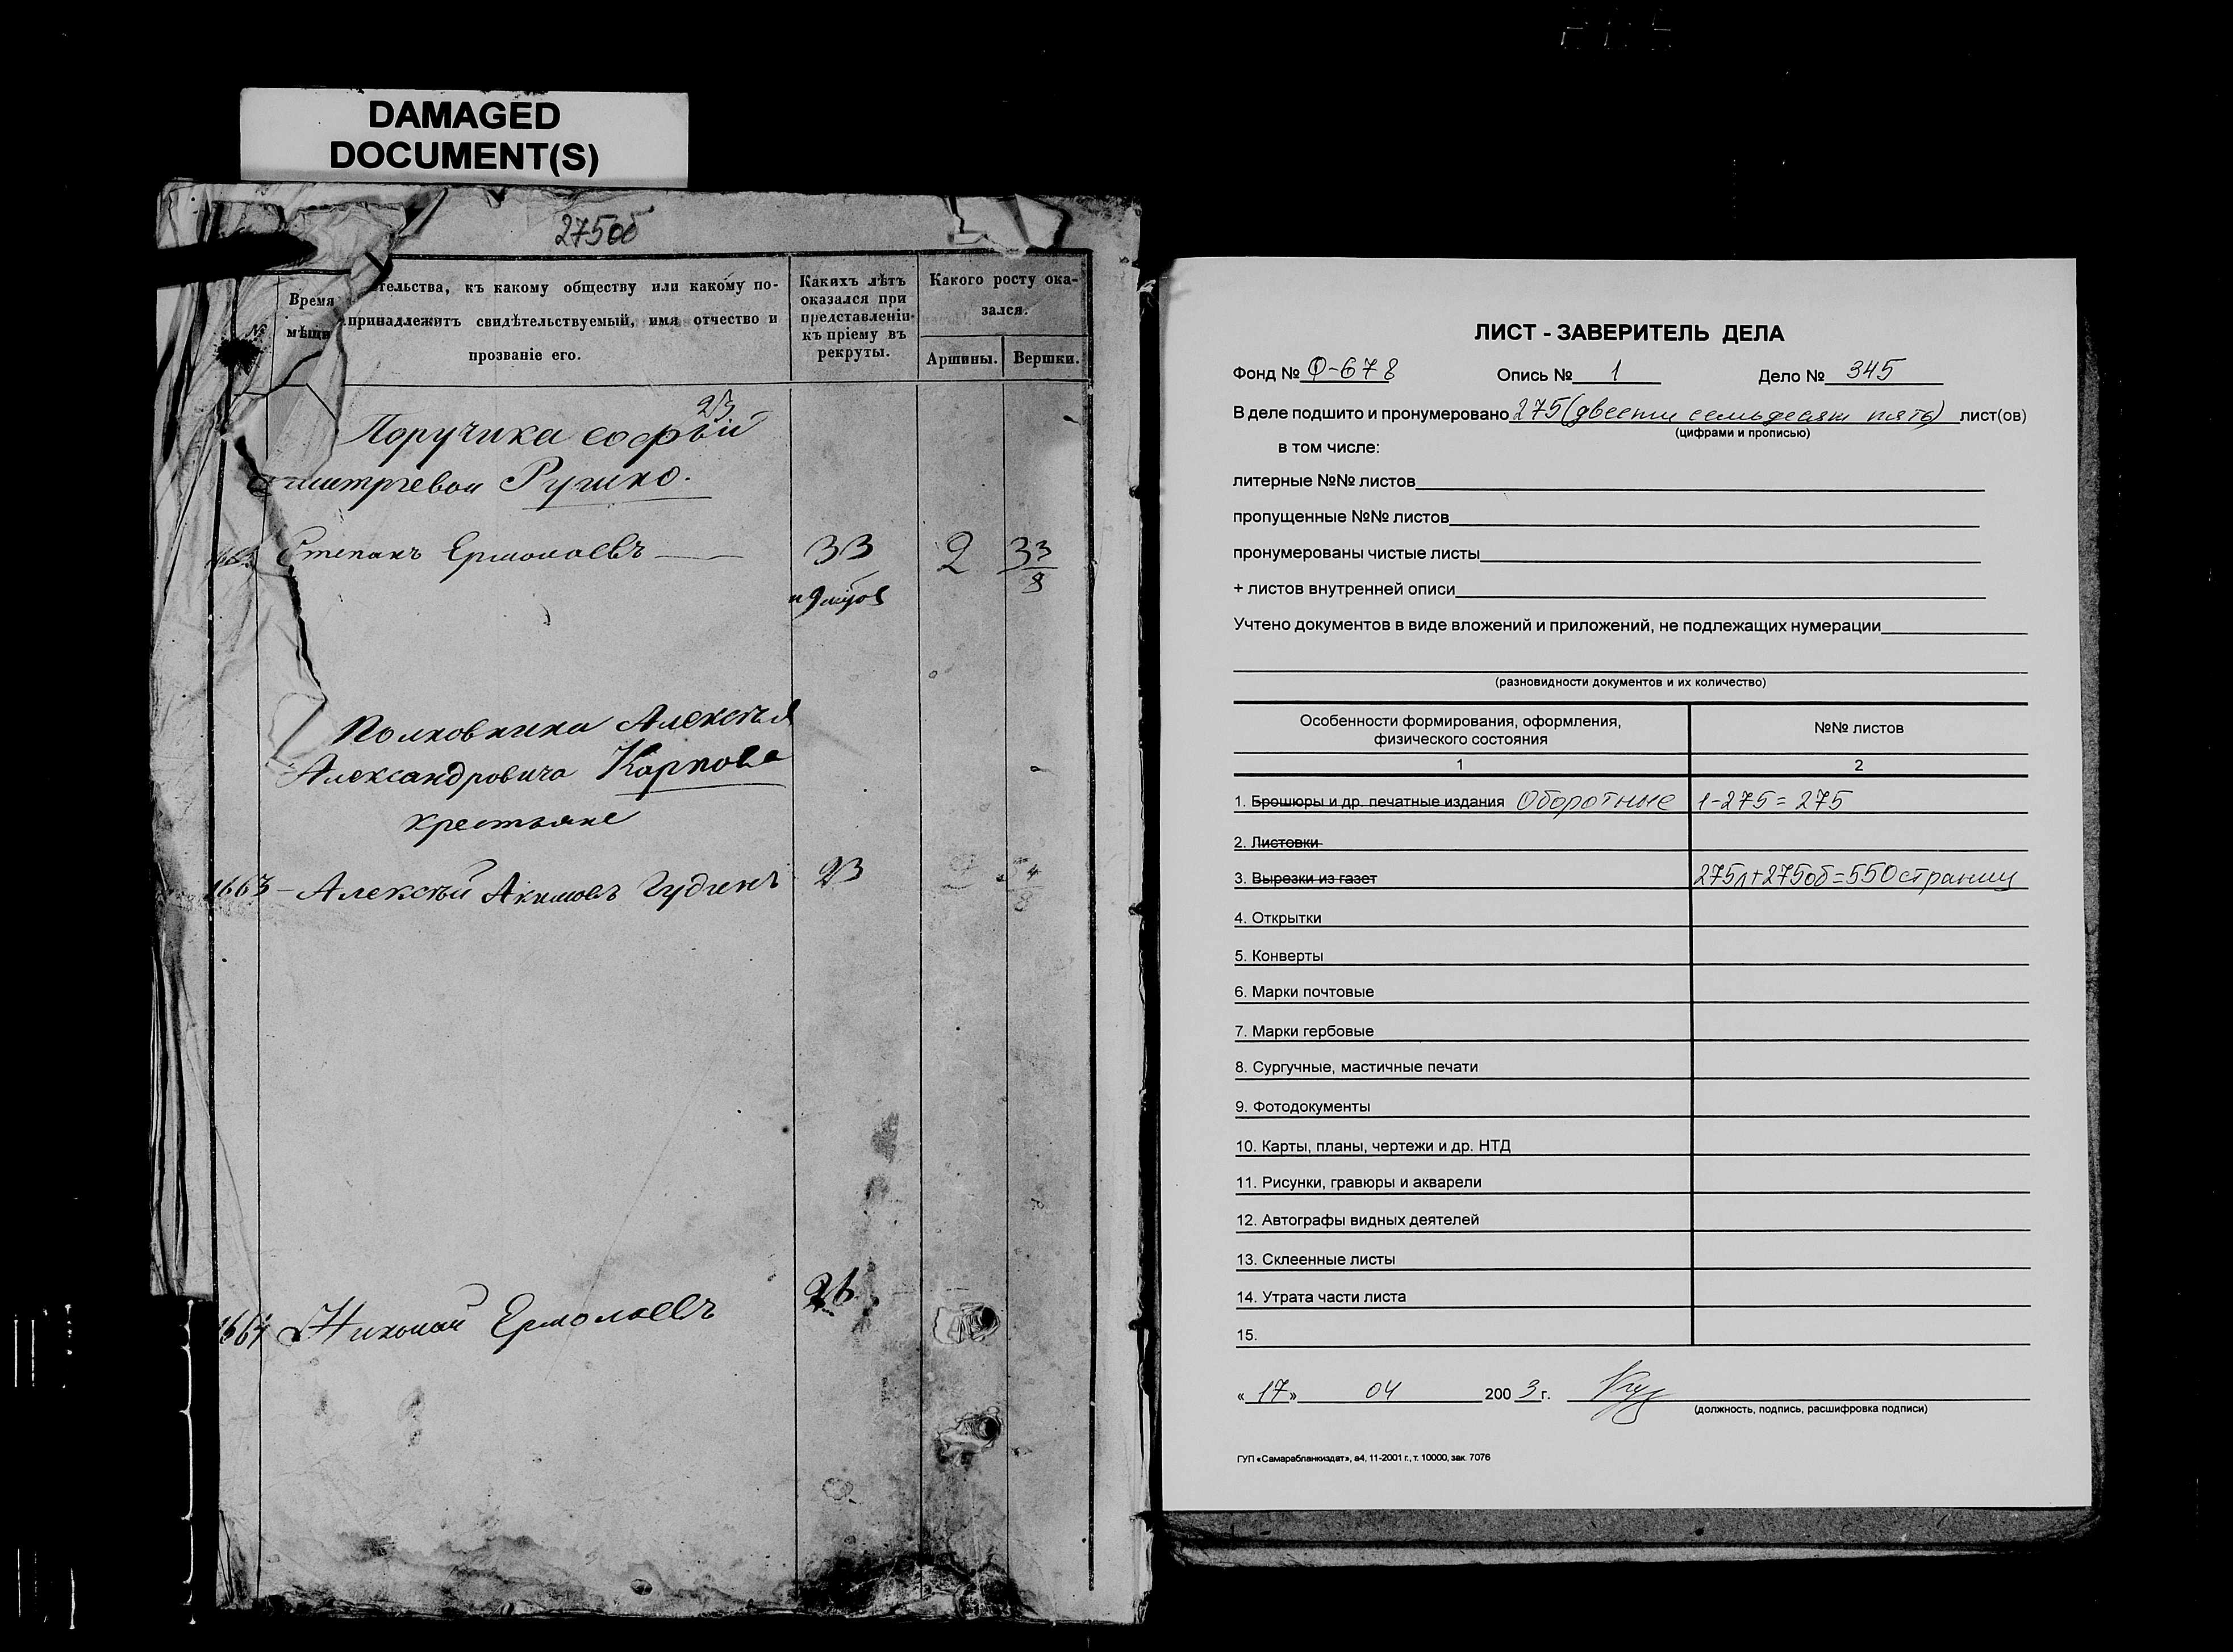 DAMAGED
DOCUMENT(S)
275об
№
Время
мѣщи
тельства, къ какому обществу или какому по-
принадлежитъ свидѣтельствуемый, имя отчество и
прозваніе его.
Какихъ лѣтъ
оказался при
представленіи
къ пріему въ
рекруты.
Какого росту ока-
зался.
Аршины.
Вершки.
23
Поручика Софьи
Рушко.
Степанъ Ермолаевъ
33
2
3 3/8
Полковника Алексѣя
Александровича Карпова
крестьяне
1663 Алексѣй Акимовъ Гудинъ 23
4/8
1664 Николай Ермолаевъ 26
ЛИСТ - ЗАВЕРИТЕЛЬ ДЕЛА
Фонд № Ф-678 Опись № 1 Дело № 345
В деле подшито и пронумеровано 275 (двести семьдесят пять) лист(ов)
(цифрами и прописью)
в том числе:
литерные №№ листов
пропущенные №№ листов
пронумерованы чистые листы
+ листов внутренней описи
Учтено документов в виде вложений и приложений, не подлежащих нумерации
(разновидности документов и их количество)
Особенности формирования, оформления,
физического состояния
№№ листов
1 2
1. Брошюры и др. печатные издания Оборотные 1-275 = 275
2. Листовки
3. Вырезки из газет 275л+275об=550страниц
4. Открытки
5. Конверты
6. Марки почтовые
7. Марки гербовые
8. Сургучные, мастичные печати
9. Фотодокументы
10. Карты, планы, чертежи и др. НТД
11. Рисунки, гравюры и акварели
12. Автографы видных деятелей
13. Склеенные листы
14. Утрата части листа
15.
« 17 » 04 200 3 г.
(должность, подпись, расшифровка подписи)
ГУП «Самарабланкиздат», а4, 11-2001 г., т. 10000, зак. 7076